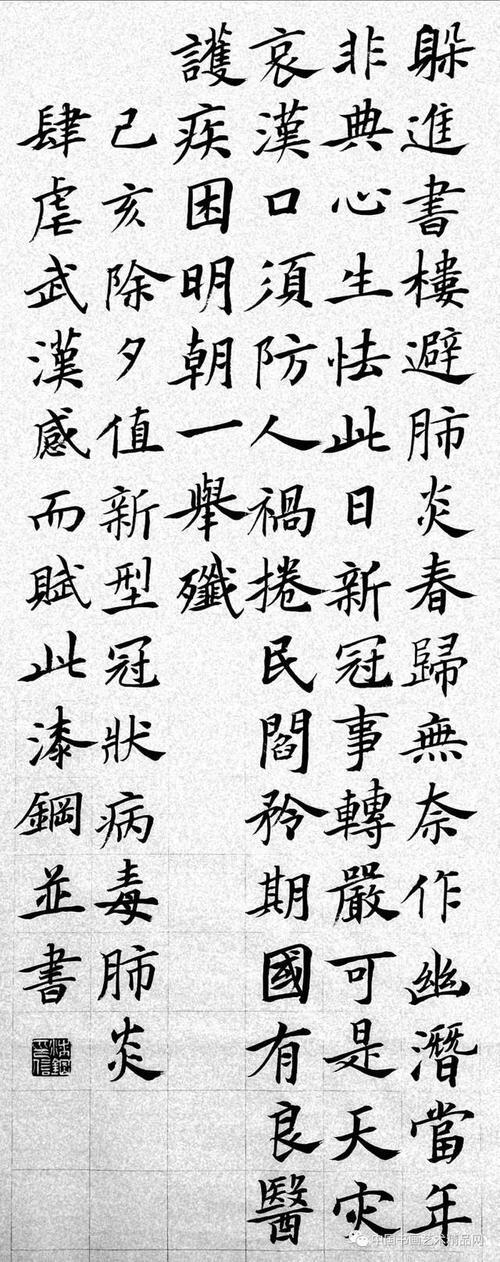 躲進書樓避肺炎春歸無奈作幽潛當年
非典心生怯此日新冠事轉嚴可是天灾
哀漢口須防人禍捲民閻矜期國有良醫
護疾困明朝一舉殲
己亥除夕值新型冠狀病毒肺炎
肆虐武漢感而賦此漆鋼並書
中国书画艺术精品网